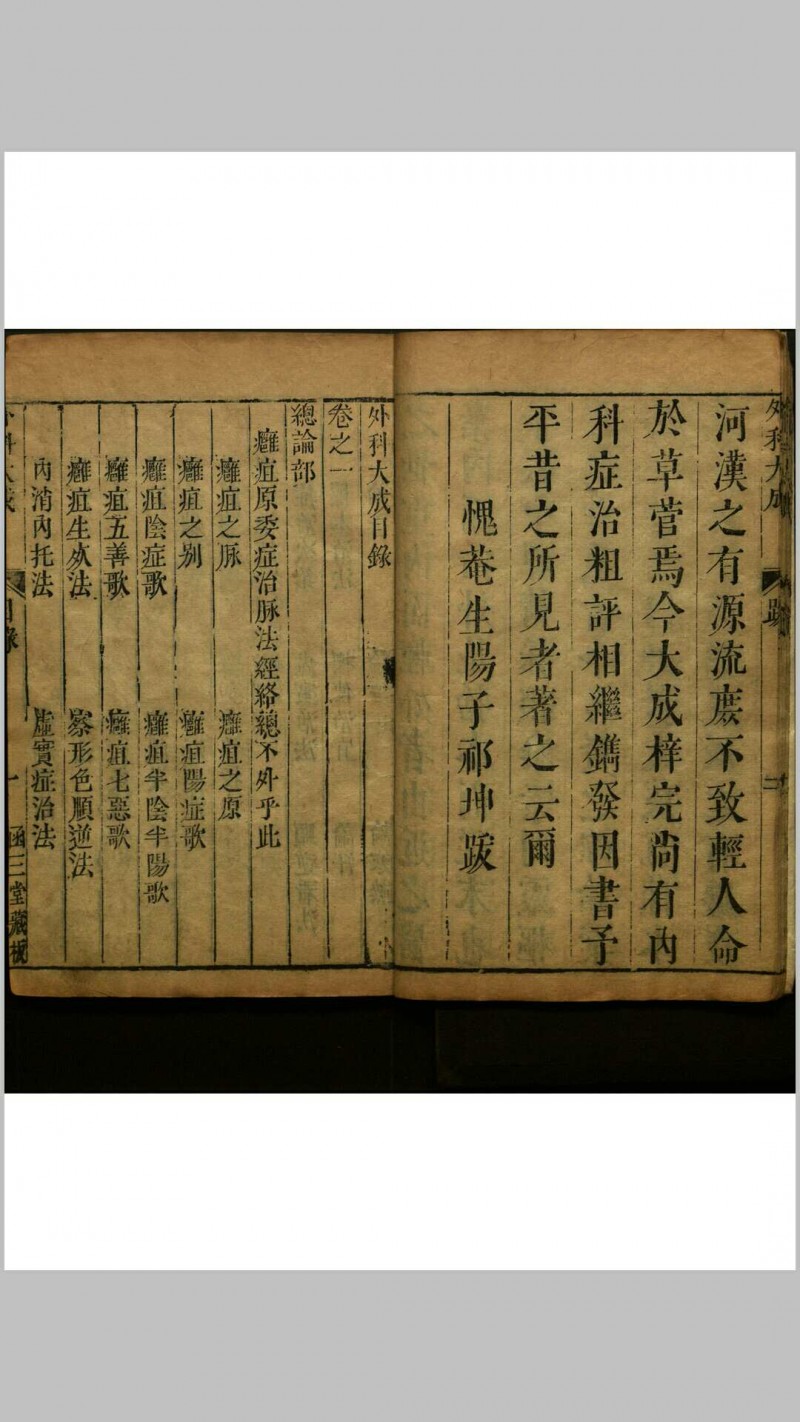 外科大成
跋
二
河漢之有源流庻不致輕人命
於草菅焉今大成梓完尚有內
科症治粗評相繼鐫發因書予
平昔之所見者著之云爾
愧菴生陽子祁坤跋
外科大成目錄
卷之一
總論部
癰疽原委症治脉法經絡總不外乎此
癰疽之脉 癰疽之原
癰疽之别 癰疽陽症歌
癰疽陰症歌 癰疽半陰半陽歌
癰疽五善歌 癰疽七惡歌
癰疽生死法 察形色順逆法
內消內托法 虛實症治法
外科大成
目錄
一
函三堂藏板